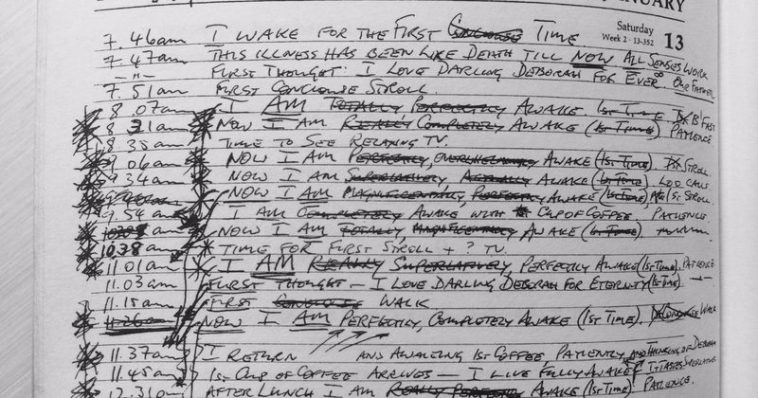 JANUARY
Saturday
Week 2 · 13-352 13
7.46am I WAKE FOR THE FIRST CONCIOUSE TIME
7.47am THIS ILLNESS HAS BEEN LIKE DEATH TILL NOW ALL SENSES WORK
-"- FIRST THOUGHT: I LOVE DARLING DEBORAH FOR EVER. OUR FATHER
7.51am FIRST CONCIOUSE STROLL.
8.07am I AM TOTALLY PERFECTLY AWAKE. 1ST TIME B'FAST
8 31am NOW I AM REALLY COMPLETELY AWAKE (1ST TIME) PATIENCE
8 38am TIME TO SEE RELAXING TV.
9 06am NOW I AM PERFECTLY, OVERWHELMINGLY AWAKE (1ST TIME). 1ST STROLL
9.34am NOW I AM SUPERLATIVELY ACTUALLY AWAKE (1ST TIME) LOO CALL
NOW I AM MAGNIFICENTLY, PERFECTLY AWAKE (1ST TIME) 1ST STROLL
9.54am I AM COMPLETELY AWAKE WITH CUP OF COFFEE. PATIENCE
NOW I AM TOTALLY MAGNIFICENTLY AWAKE (1ST TIME)
10.38am TIME FOR FIRST STROLL + ? TV.
11.01am I AM REALLY SUPERLATIVELY PERFECTLY AWAKE (1ST TIME). PATIENCE
11.03am FIRST THOUGHT — I LOVE DARLING DEBORAH FOR ETERNITY (1ST TIME).
11.15am FIRST CONCIOUSE WALK
11.26am NOW I AM PERFECTLY, COMPLETELY AWAKE (1ST TIME). WALK
11.37am I RETURN AND AWAITING 1ST COFFEE PATIENTLY AND THINKING OF DEBORAH
11.45am 1ST CUP OF COFFEE ARRIVES — I LIVE FULLY AWAKE! IT TASTES SUPERLATIVE
12.31pm AFTER LUNCH I AM REALLY PERFECTLY AWAKE (1ST TIME) PATIENCE.